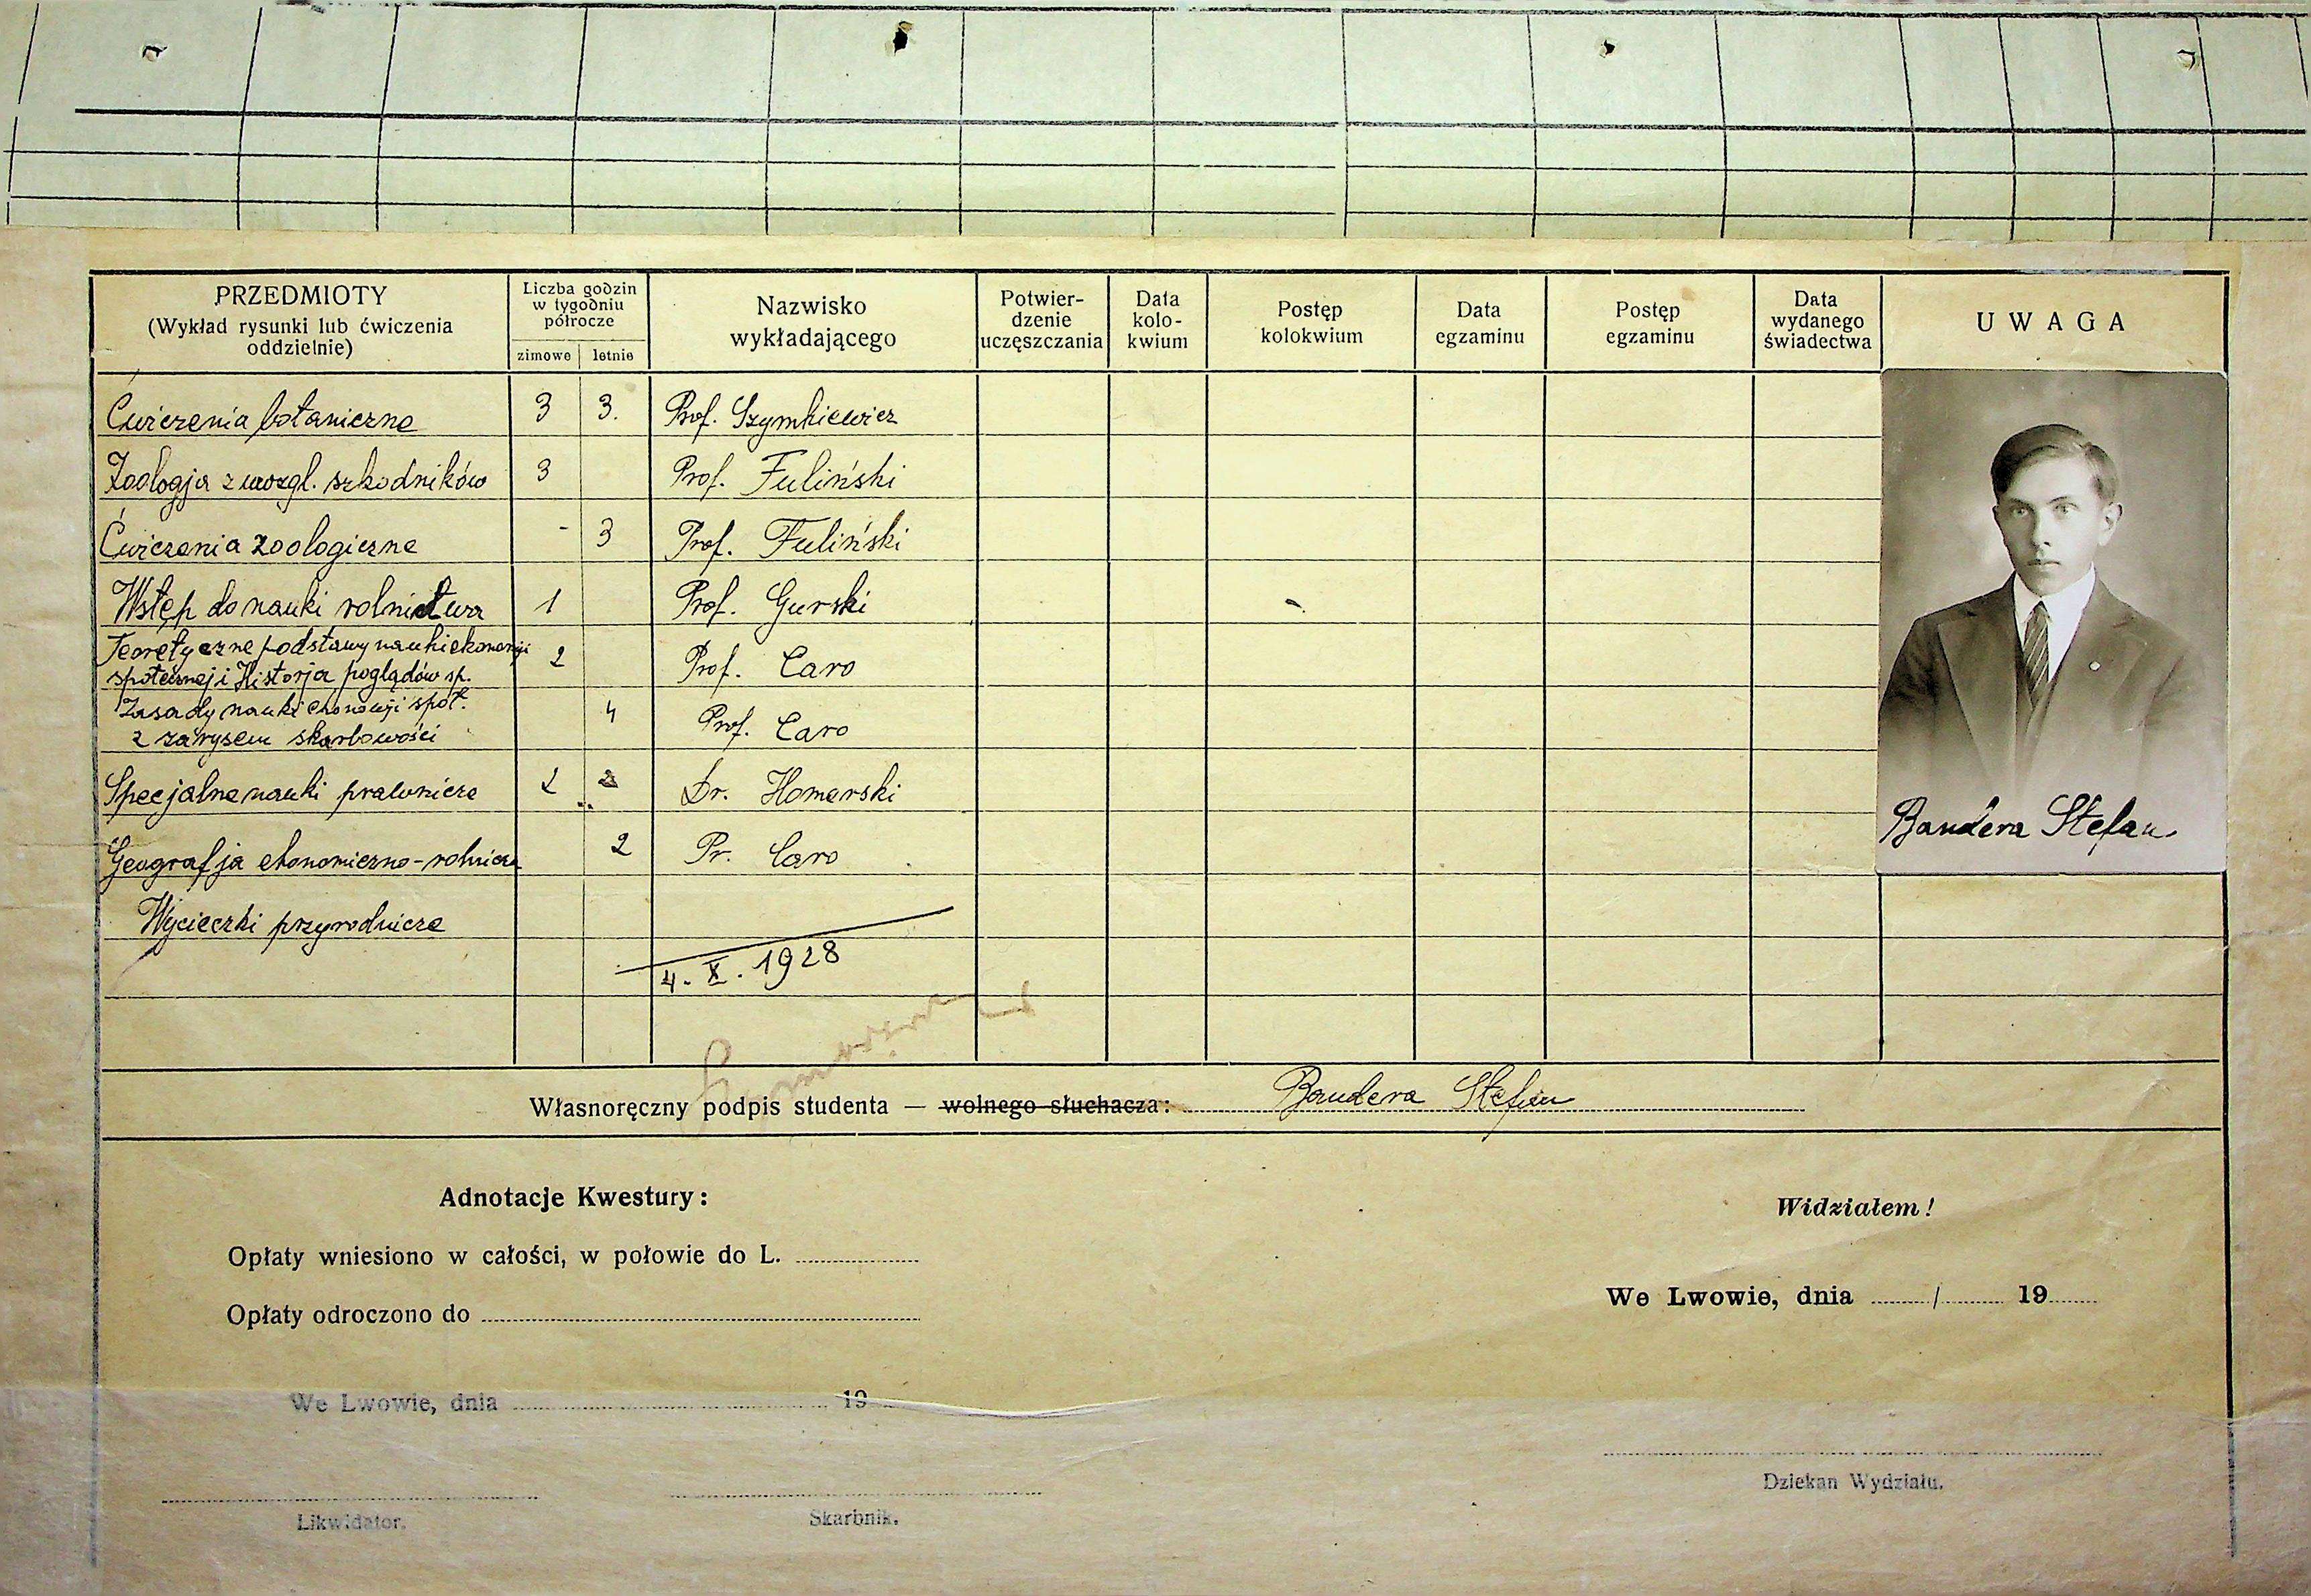 PRZEDMIOTY
(Wykład rysunki lub ćwiczenia
oddzielnie)
Liczba godzin
w tygodniu
półrocze
zimowe letnie
Nazwisko
wykładającego
Potwier-
dzenie
uczęszczania
Data
kolo-
kwium
Postęp
kolokwium
Data
egzaminu
Postęp
egzaminu
Data
wydanego
świadectwa
UWAGA
Ćwiczenia botaniczne 3 3. Prof. Szymkiewicz
Zoologja z uwzgl. szkodników 3 Prof. Fuliński
Ćwiczenia zoologiczne - 3 Prof. Fuliński
Wstęp do nauki rolnictwa 1 Prof. Gurski
Teoretyczne podstawy nauki ekonomji
społecznej i Historja poglądów sp. 2 Prof. Caro
Zasady nauki ekonomji społ.
z zarysem skarbowości 4 Prof. Caro
Specjalne nauki prawnicze 2 2 Dr. Homerski
Geografja ekonomiczno-rolnicza 2 Pr. Caro
Wycieczki przyrodnicze
4. X. 1928
Bandera Stefan
Własnoręczny podpis studenta — wolnego słuchacza: Bandera Stefan
Adnotacje Kwestury:
Opłaty wniesiono w całości, w połowie do L.
Opłaty odroczono do
We Lwowie, dnia 19
Likwidator.
Skarbnik.
Widziałem!
We Lwowie, dnia / 19
Dziekan Wydziału.